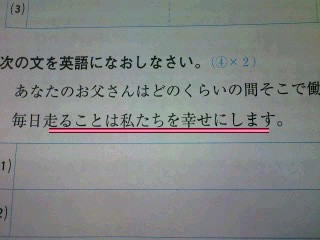 (3)
次の文を英語になおしなさい。(④×2)
あなたのお父さんはどのくらいの間そこで働
毎日走ることは私たちを幸せにします。
1)
2)